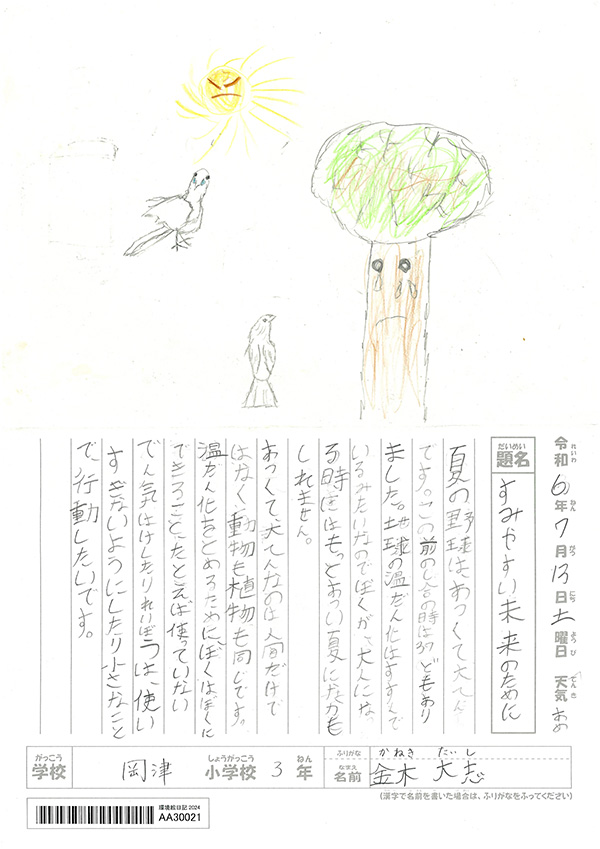 令和6年7月13日土曜日 天気あめ
れいわ ねん がつ にち ようび てんき
だいめい
題名
すみやすい未来のために
夏の野球は、あつくて大へん
です。この前のしぁいの時は37どもあり
ました。地球の温だん化はすすんで
いるみたいなのでぼくが、大人にな
る時にはもっとあつい夏になるかも
しれません。
あつくて大へんなのは人間だけで
はなく、動物も植物も同じです。
温だん化をとめるためにぼくはぼくに
できることたとえば使っていない
でん気はけしたりれいぼうは、使い
すぎないようにしたり小さなこと
で、行動したいです。
がっこう
学校
岡津
しょうがっこう
小学校
3
ねん
年
ふりがな
かねき たいし
なまえ
名前
金木 大志
(漢字で名前を書いた場合は、ふりがなをふってください)
環境絵日記2024
AA30021